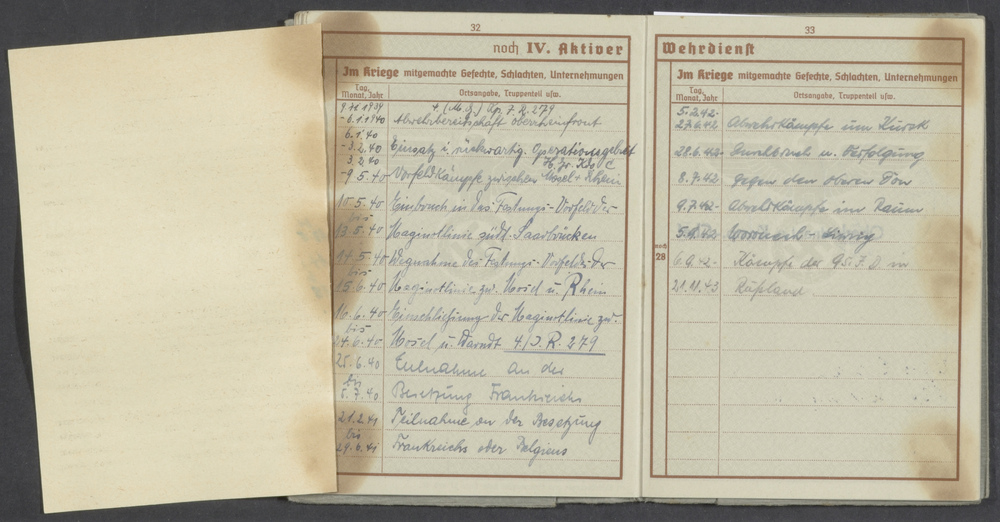 32
noch IV. Aktiver
Im Kriege mitgemachte Gefechte, Schlachten, Unternehmungen
Tag, Monat, Jahr
Ortsangabe, Truppenteil usw.
4. (M.G.) Kp. J.R. 279
9.11.1939
-6.1.1940 Abwehrbereitschaft Oberrheinfront
6.1.40
-3.2.40 Einsatz i. rückwärtig. Operationsgebiet
3.2.40 H. Gr. Kdo C
-9.5.40 Vorfeldkämpfe zwischen Mosel + Rhein
10.5.40 Einbruch in das Festungs-Vorfeld der
bis
13.5.40 Maginotlinie südl. Saarbrücken
14.5.40 Wegnahme des Festungs-Vorfeldes der
bis
15.6.40 Maginotlinie zw. Mosel u. Rhein
16.6.40 Einschließung der Maginotlinie zw.
bis
24.6.40 Mosel u. Warndt 4./J.R. 279
25.6.40 Teilnahme an der
bis
5.7.40 Besetzung Frankreichs
21.2.41 Teilnahme an der Besetzung
bis
29.6.41 Frankreichs oder Belgiens
33
Wehrdienst
Im Kriege mitgemachte Gefechte, Schlachten, Unternehmungen
Tag, Monat, Jahr
Ortsangabe, Truppenteil usw.
5.2.42-
27.6.42 Abwehrkämpfe um Kursk
28.6.42- Durchbruch u. Verfolgung
8.7.42 gegen den oberen Don
9.7.42- Abwehrkämpfe im Raum
noch 28
6.9.42- Kämpfe der 95. J.D in
21.11.43 Rußland